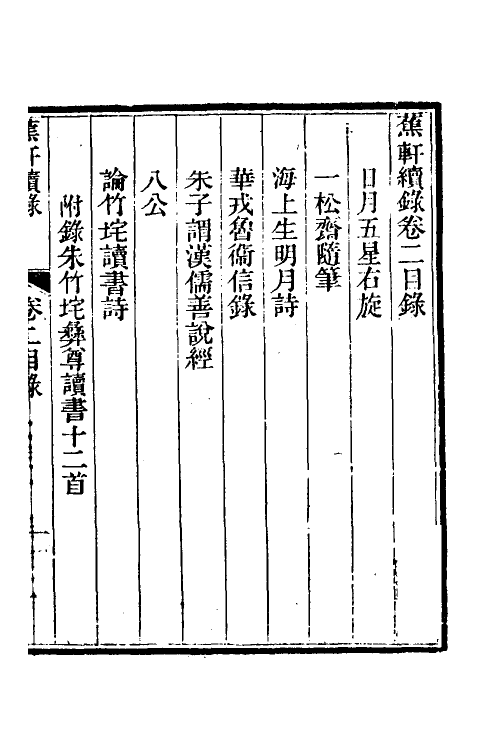 蕉軒續錄卷二目錄
日月五星右旋
一松齋隨筆
海上生明月詩
華戎魯衞信錄
朱子謂漢儒善說經
八公
論竹垞讀書詩
附錄朱竹垞彝尊讀書十二首
蕉軒續錄
卷二目錄
一